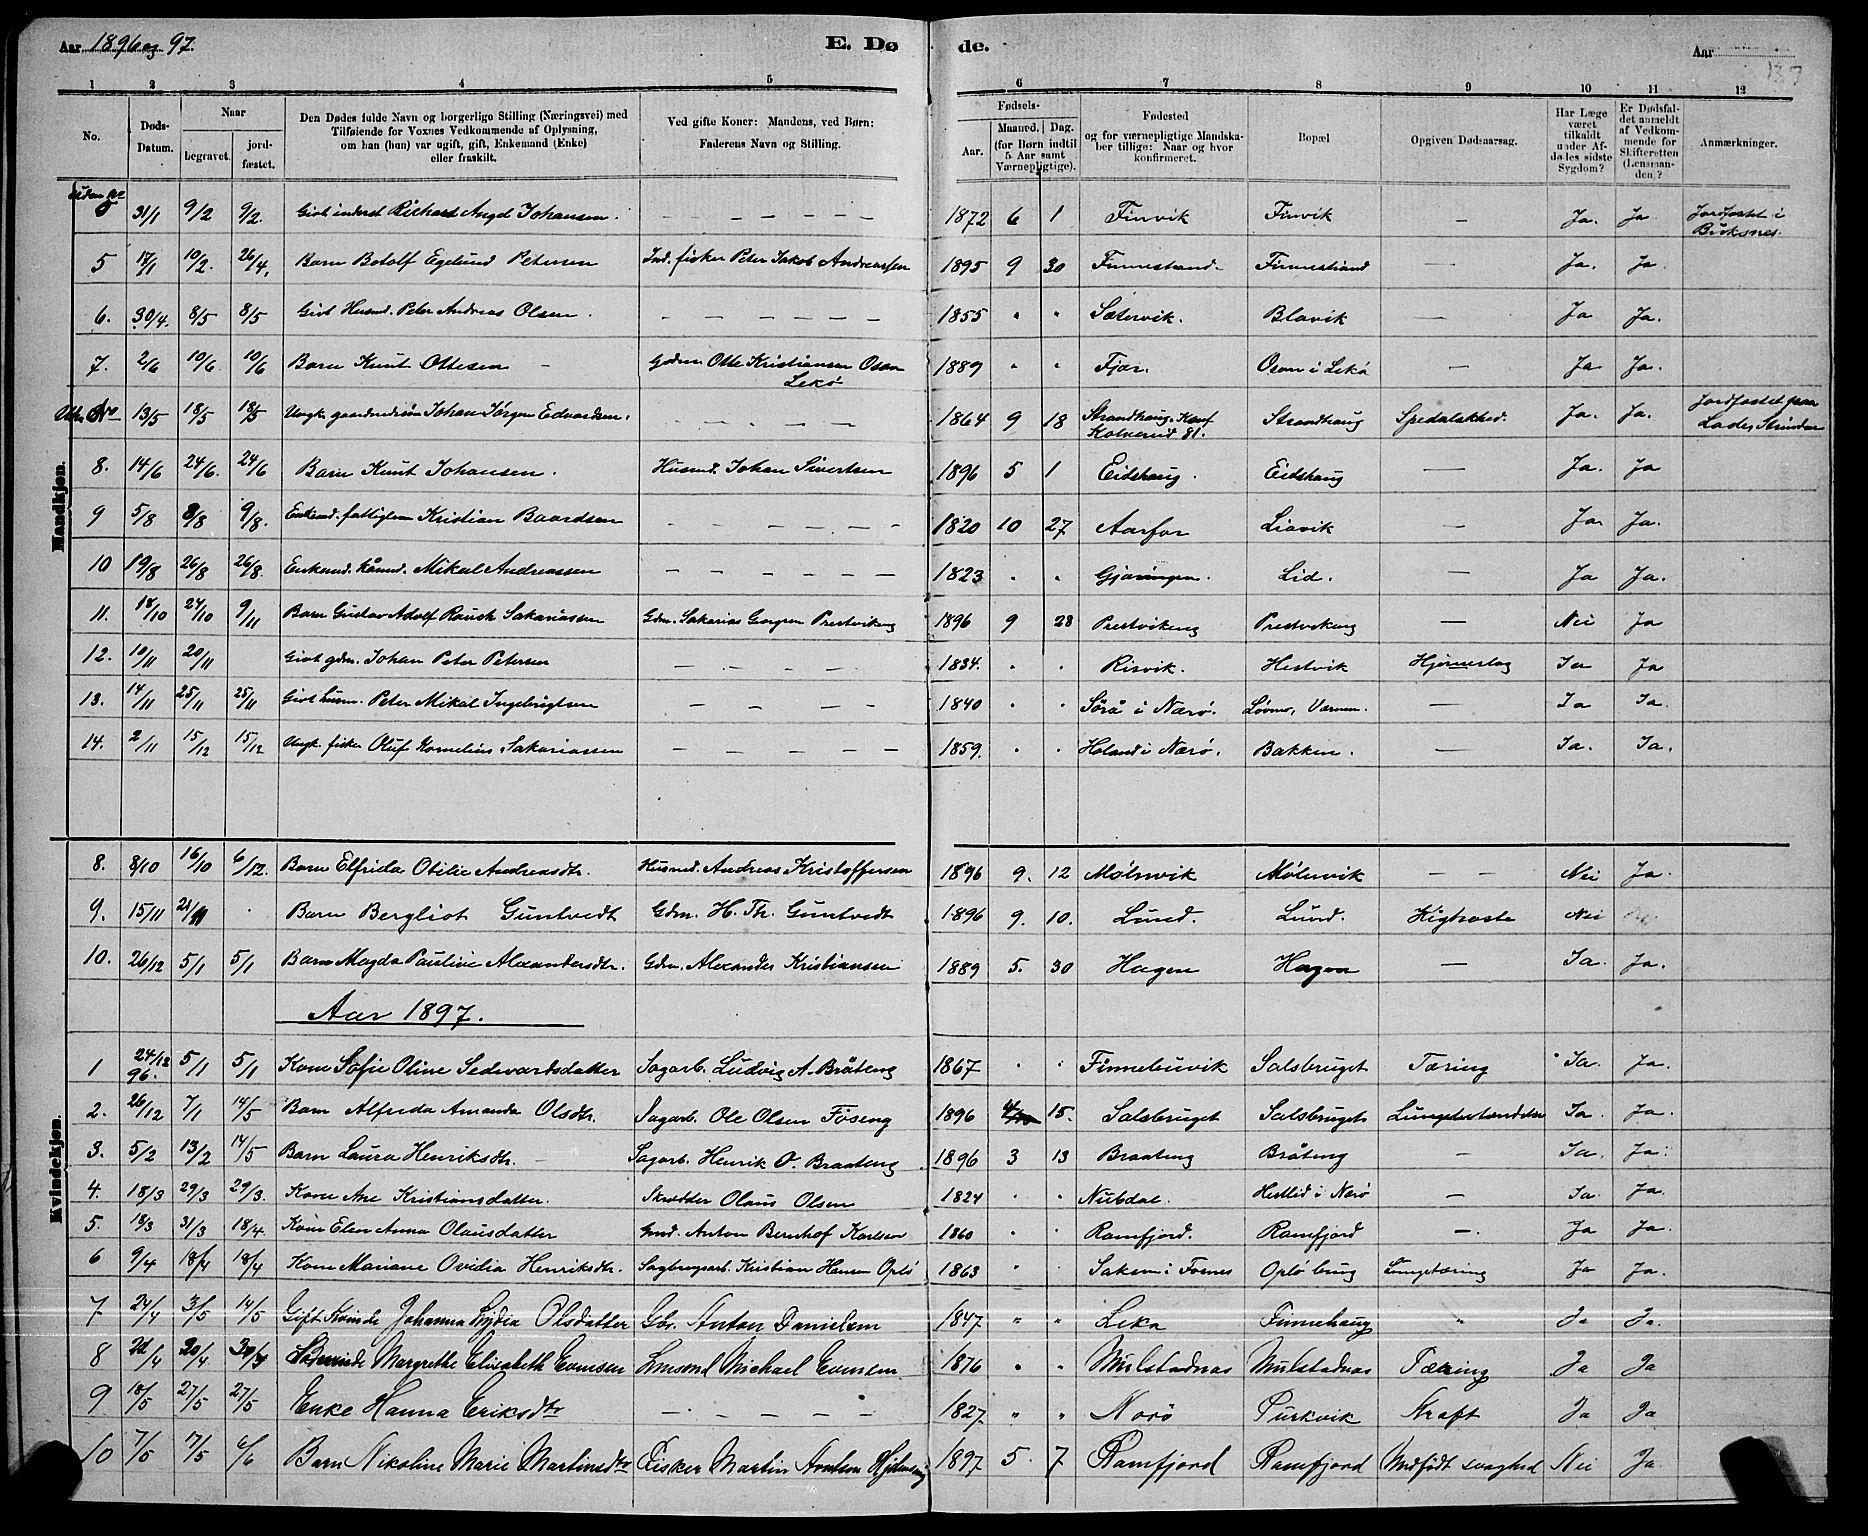 Aar 1896 og 97. E. Dø de. Aar
137
1 2 3 4 5 6 7 8 9 10 11 12
No. Døds-Datum. Naar begravet. jordfæstet. Den Dødes fulde Navn og borgerlige Stilling (Næringsvei) med Tilføiende for Voxnes Vedkommende af Oplysning, om han (hun) var ugift, gift, Enkemand (Enke) eller fraskilt. Ved gifte Koner: Mandens, ved Børn: Faderens Navn og Stilling. Fødsels- Aar. Maaned. Dag. (for Børn indtil 5 Aar samt Værnepligtige). Fødested og for værnepligtige Mandskaber tillige: Naar og hvor konfirmeret. Bopæl. Opgiven Dødsaarsag. Har Læge været tilkaldt under Afdødes sidste Sygdom? Er Dødsfaldet anmeldt af Vedkommende for Skifteretten (Lensmanden)? Anmærkninger.
Mandkjøn.
Uden No 31/1 9/2 9/2. Givt inderst Richard Angel Johansen. — — — — — — 1872 6 1 Finvik Finvik — Ja. Ja Jordfæstet i Buksnes.
5 17/1 10/2. 26/4. Barn Botolf Egelund Petersen Ind. fisker Peter Jakob Andreassen 1895 9 30 Finnestrand. Finnestrand — Ja. Ja
6. 30/4. 8/5 8/5 Givt Husmd. Peter Andreas Olsen. — — — — — — 1855 " " Sætervik. Blavik — Ja Ja.
7. 2/6 10/6 10/6 Barn Knut Ottesen — Gdm Otte Kristiansen Osan Lekø 1889 " " Fjær. Osen i Leka — Ja Ja.
Uden No 13/5 18/5 18/5 Ungk. gaardmdssøn Johan Jørgen Edvardsen. — — — — — 1864 9 18 Strandhaug. Konf. Kolvereid 81. Strandhaug Spedalskhed. Ja. Ja. Jordfæstet paa Lades Strinden
8. 14/6 24/6. 24/6 Barn Knut Johansen. Husmd. Johan Sivertsen 1896 5 1 Eidshaug. Eidshaug — Ja. Ja
9 5/8 8/8 9/8. Enkemd. fattiglem Kristian Baardsen — — — — — — 1820 10 27 Aarfor Liavik — Ja Ja.
10 19/8 26/8 26/8. Enkemd. kårmd. Mikal Andreassen — — — — — — 1823 " " Gjæringen. Lid. — Ja Ja.
11. 18/10 24/10 9/11 Barn Gustav Adolf Rausk Sakariassen Gdm. Sakarias Gorgsen Prestvikeng 1896 9 28 Prestvikeng Prestvikeng — Nei Ja
12. 10/11 20/11 Givt gdm. Johan Peter Petersen — — — — — 1834. " " Risvik. Hestvik Hjerneslag Ja Ja
13. 14/11 25/11 25/11 Givt husm. Peter Mikal Ingebrigtsen — — — — — 1840 " " Sørå i Nærø. Løvmo, Værum. — Ja Ja.
14. 2/11 15/12 15/12 Ungk. fisker Oluf Kornelius Sakariassen — — — — — — 1859. " " Holand i Nærø. Bakken. — Ja. Ja.
Kvindekjøn.
8. 8/10 16/10 6/12. Barn Elfrida Otilie Andreasdtr. Husmd. Andreas Kristoffersen 1896 9. 12 Mølnvik Mølnvik — — Nei Ja.
9. 15/11 21/11 . Barn Bergliot Guntvedt Gdm. H. Th. Guntvedt 1896 9. 10. Lund. Lund. Kighoste Nei
10. 26/12 5/1 5/1 Barn Magda Pauline Alexandersdtr. Gdm. Alexander Kristiansen 1889 5. 30 Hagen Hagen — Ja. Ja.
Aar 1897.
1 24/12 96. 5/1 5/1 Kone Sofie Oline Sedevartsdatter Sagarb. Ludvig A. Bråteng 1867 " " Finnebuvik Salsbruget Tæring Ja. Ja.
2. 26/12 7/1 14/5 Barn Alfrida Amanda Olsdtr. Sagarb. Ole Olsen Føseng 1896 4/10 15. Salsbruget Salsbruget Lungebetændelse Ja. Ja.
3. 5/2 13/2 14/5 Barn Laura Henriksdtr. — Sagarb. Henrik O. Braateng 1896 3 13 Braateng Bråteng — Ja. Ja.
4. 18/3 29/3 29/3. Kone Ane Kristiansdatter. Skrædder Olaus Olsen 1824 " " Nubdal. Hestlid i Nærø — Ja. Ja.
5. 18/3 31/3 18/4. Kone Elen Anna Olausdatter Gmd. Anton Bernhof Karlsen 1860 " Ramfjord. Ramfjord — Ja Ja.
6 9/4 18/4 18/4 Kone Mariane Ovidia Henriksdtr. Sagbrugsarb. Kristian Hansen Oplø 1863 " Saksen i Fosnes Oplø brug Lungetæring Ja Ja.
7 24/4 3/5 14/5 Gift Kvinde Johanna Lydia Olsdatter Gbr. Anton Danielsen 1847 " " Leka Finnehaug " Ja Ja.
8 22/4 20/4 30/4 Margrethe Elisabeth Evensen Lmsmd Michael Evensen 1876 " " Mulstadnas Mulstadnas Tæring Ja Ja
9 18/5 27/5 27/5 Enke Hanna Eriksdtr — — — — 1827 " " Nærø Purkvik Kræft Ja Ja
10 7/5 17/5 6/6 Barn Nikoline Marie Martinsdtr Fisker Martin Arntsen 1897 5. 7 Ramfjord Ramfjord Medfødt svaghed Nei Ja